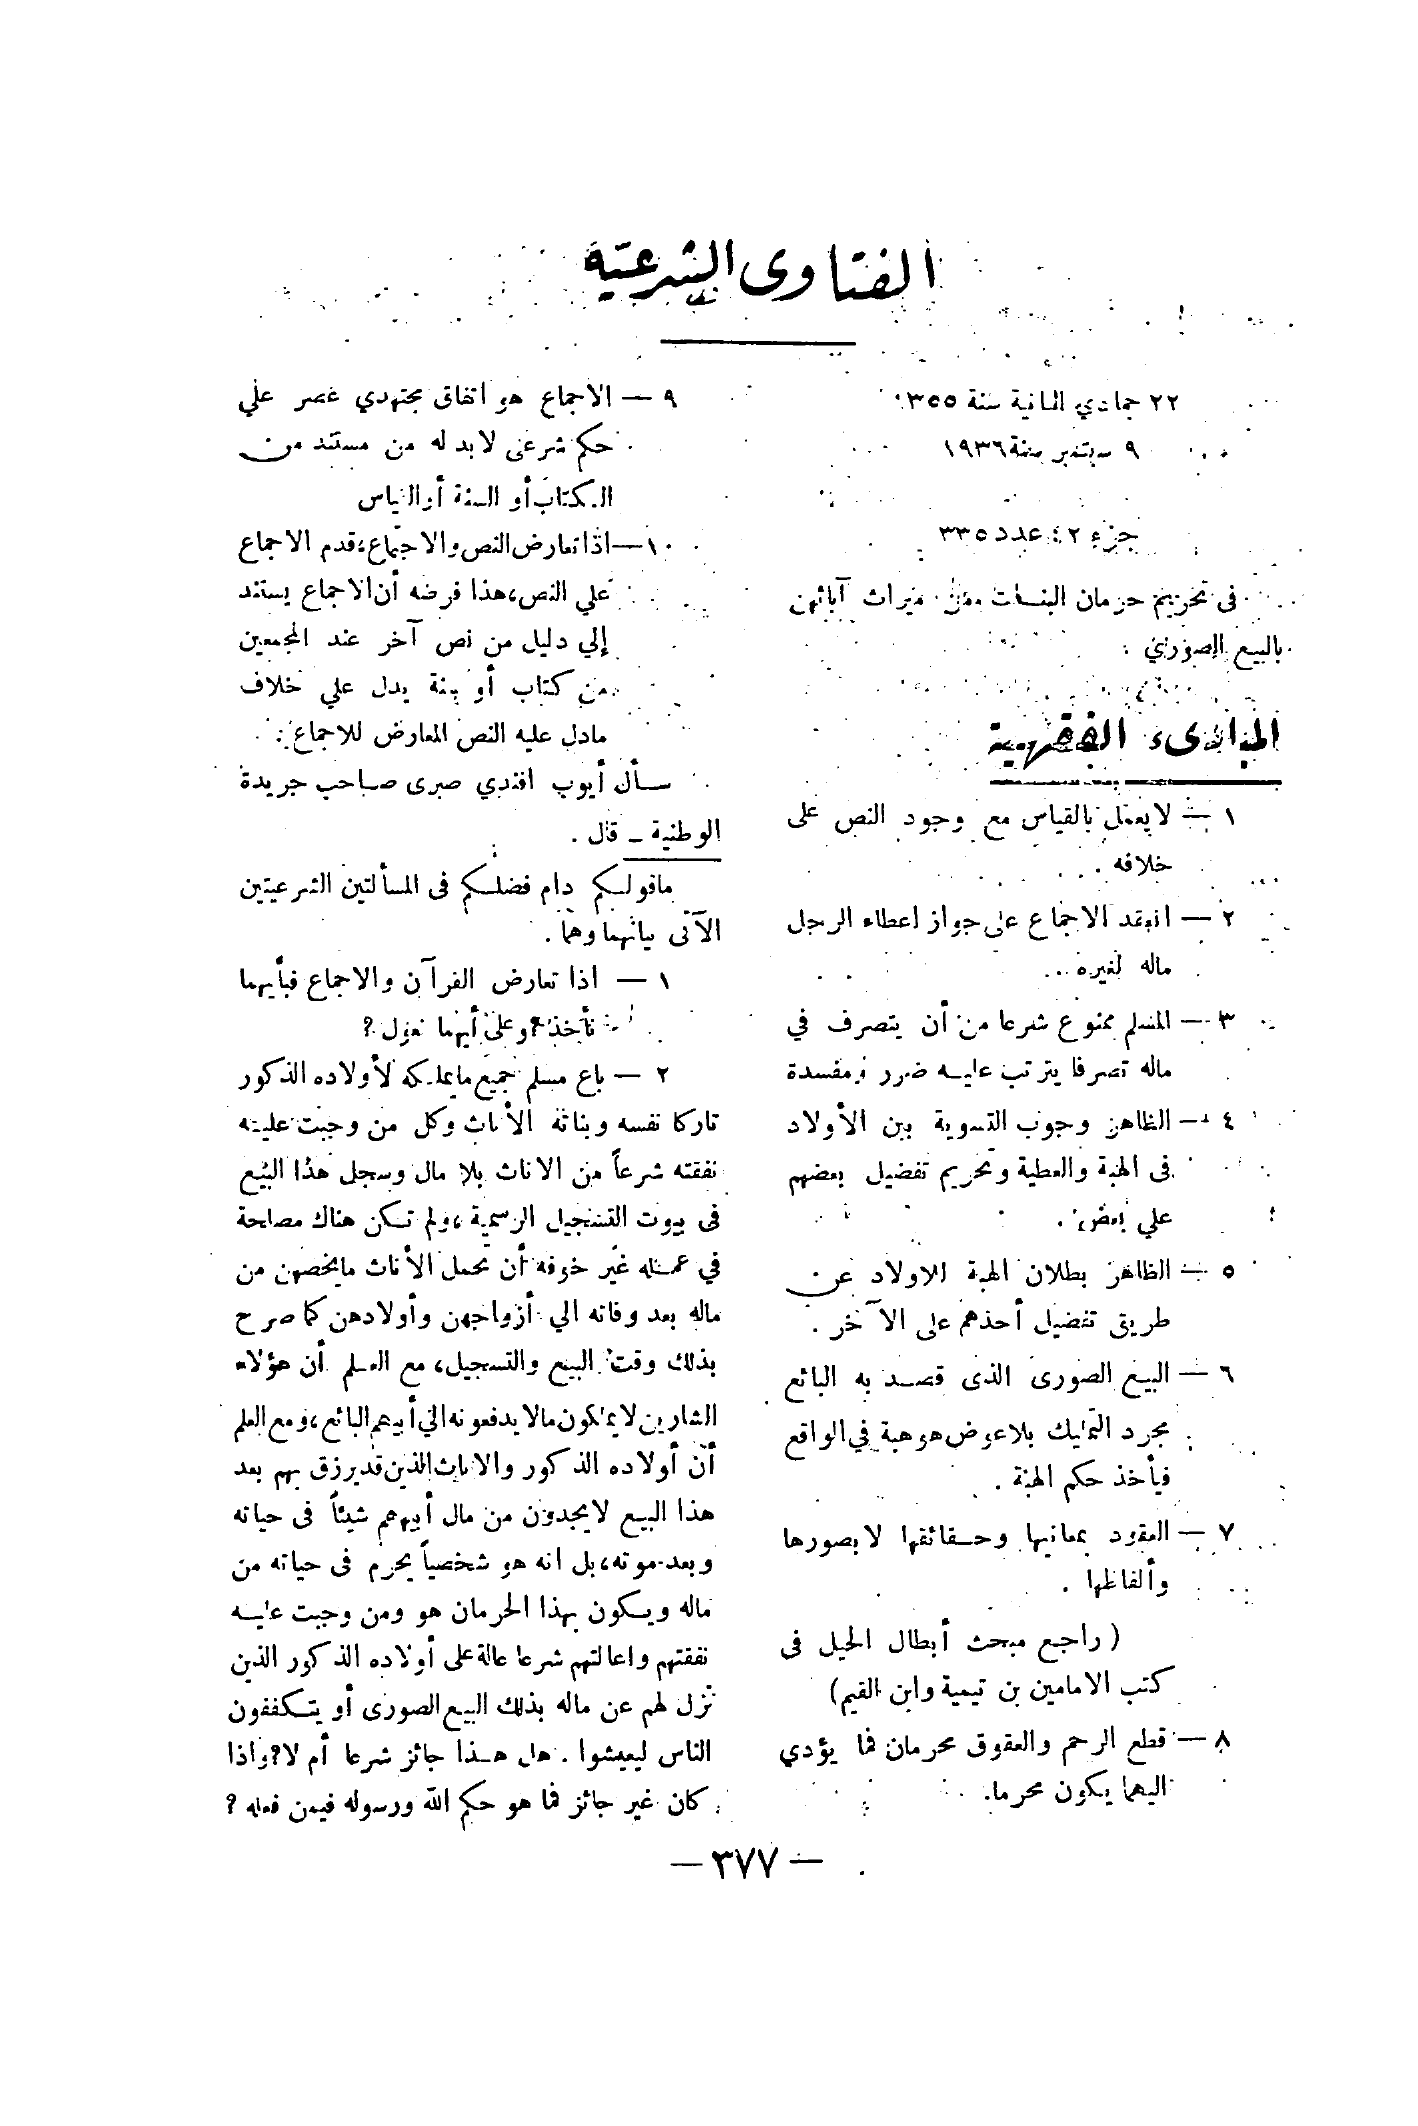 الفتاوى الشرعية
٢٢ جمادي الثانية سنة ١٣٥٥
٩ سبتمبر سنة ١٩٣٦
جزء ٤٢ عدد ٣٣٥
فى تحريم حرمان البنات من ميراث آبائهن
بالبيع الصورى :
المبادىء الفقهية
١ — لا يعمل بالقياس مع وجود النص على
خلافه .
٢ — انعقد الاجماع على جواز اعطاء الرجل
ماله لغيره .
٣ — المسلم ممنوع شرعا من أن يتصرف في
ماله تصرفا يترتب عليه ضرر ومفسدة
٤ — الظاهر وجوب التسوية بين الأولاد
فى الهبة والعطية وتحريم تفضيل بعضهم
علي بعض .
٥ — الظاهر بطلان الهبة للاولاد عن
طريق تفضيل أحدهم على الآخر .
٦ — البيع الصورى الذى قصد به البائع
مجرد التمليك بلا عوض هو هبة في الواقع
فيأخذ حكم الهبة .
٧ — العقود بمعانيها وحقائقها لا بصورها
وألفاظها .
( راجع مبحث أبطال الحيل فى
كتب الامامين بن تيمية وابن القيم)
٨ — قطع الرحم والعقوق محرمان فما يؤدي
اليهما يكون محرما.
٩ — الاجماع هو اتفاق مجتهدي عصر علي
حكم شرعى لا بد له من مستند من
الكتاب أو السنة أو القياس
١٠ — اذا تعارض النص والاجماع، قدم الاجماع
علي النص، هذا فرضه أن الاجماع يستند
إلي دليل من نص آخر عند المجمعين
من كتاب أو سنة يدل علي خلاف
مادل عليه النص المعارض للاجماع :
سأل أيوب افندي صبرى صاحب جريدة
الوطنية ـ قال .
ما قولكم دام فضلكم فى المسألتين الشرعيتين
الآتى بيانهما وهما .
١ — اذا تعارض القرآن والاجماع فبأيهما
نأخذ؟ وعلى أيهما نعول ?
٢ — باع مسلم جميع ما يملكه لأولاده الذكور
تاركا نفسه وبناته الأناث وكل من وجبت عليه
نفقته شرعاً من الاناث بلا مال وسجل هذا البيع
فى بيوت التسجيل الرسمية ، ولم تكن هناك مصلحة
في عمله غير خوفه أن تحمل الأناث ما يخصهن من
ماله بعد وفاته الي أزواجهن وأولادهن كما صرح
بذلك وقت البيع والتسجيل، مع العلم أن هؤلاء
الشارين لا يملكون مالا يدفعونه الي أبيهم البائع، ومع العلم
أن أولاده الذكور والاناث الذين قد يرزق بهم بعد
هذا البيع لا يجدون من مال أبيهم شيئاً فى حياته
وبعد موته، بل انه هو شخصياً يحرم فى حياته من
ماله ويكون بهذا الحرمان هو ومن وجبت عليه
نفقتهم واعالتهم شرعا عالة على أولاده الذكور الذين
نزل لهم عن ماله بذلك البيع الصورى أو يتكففون
الناس ليعيشوا . هل هذا جائز شرعا أم لا? واذا
كان غير جائز فما هو حكم الله ورسوله فيمن فعله ?
— ٣٧٧ —